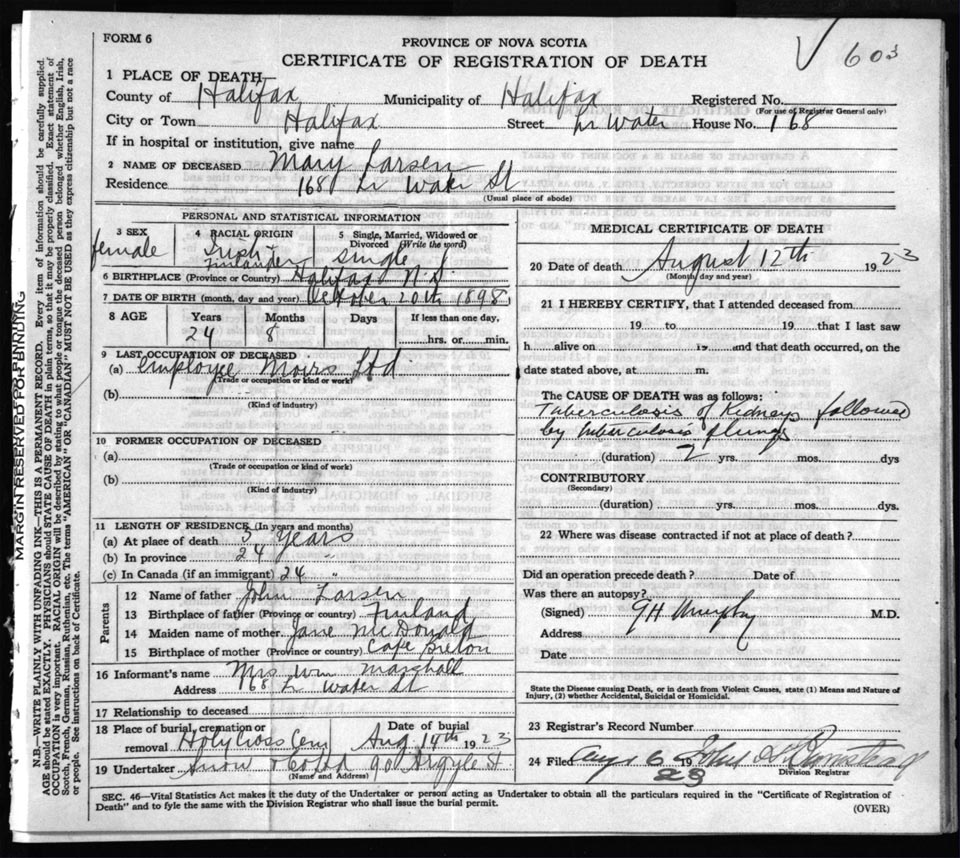 FORM 6
603
PROVINCE OF NOVA SCOTIA
CERTIFICATE OF REGISTRATION OF DEATH
1 PLACE OF DEATH,
County of Halifax Municipality of Halifax Registered No.
(For use of Registrar General only)
City or Town Halifax Street Lr Water House No. 168
If in hospital or institution, give name
2 NAME OF DECEASED Mary Larsen
Residence 168 Lr Water St
(Usual place of abode)
PERSONAL AND STATISTICAL INFORMATION
3 SEX
female
4 RACIAL ORIGIN
Irish
Finlander
5 Single, Married, Widowed or
Divorced (Write the word)
single
6 BIRTHPLACE (Province or Country) Halifax N.S.
7 DATE OF BIRTH (month, day and year) October 20th 1898
8 AGE Years Months Days If less than one day,
24 8 hrs. or min.
9 LAST OCCUPATION OF DECEASED
(a) employee Moirs Ltd
(Trade or occupation or kind or work)
(b)
(Kind of industry)
10 FORMER OCCUPATION OF DECEASED
(a)
(Trade or occupation or kind of work)
(b)
(Kind of industry)
11 LENGTH OF RESIDENCE (In years and months)
(a) At place of death 5 Years
(b) In province 24 "
(c) In Canada (if an immigrant) 24 "
Parents
12 Name of father John Larsen
13 Birthplace of father (Province or country) Finland
14 Maiden name of mother Jane McDonald
15 Birthplace of mother (Province or country) Cape Breton
16 Informant's name Mrs Wm Marshall
Address 168 Lr Water St
17 Relationship to deceased
18 Place of burial, cremation or
removal Holy Cross Cem
Date of burial
Aug 14th 1923
19 Undertaker Snow & Co Ltd 90 Argyle St
(Name and Address)
MEDICAL CERTIFICATE OF DEATH
20 Date of death August 12th 1923
(Month day and year)
21 I HEREBY CERTIFY, that I attended deceased from
19 to 19 that I last saw
h alive on 19 and that death occurred, on the
date stated above, at m.
The CAUSE OF DEATH was as follows:
Tuberculosis of Kidneys followed
by tuberculosis of lungs
(duration) 2 yrs. mos. dys
CONTRIBUTORY
(Secondary)
(duration) yrs. mos. dys.
22 Where was disease contracted if not at place of death?
Did an operation precede death? Date of
Was there an autopsy?
(Signed) GH Murphy M.D.
Address
Date
State the Disease causing Death, or in death from Violent Causes, state (1) Means and Nature of
Injury, (2) whether Accidental, Suicidal or Homicidal.
23 Registrar's Record Number
24 Filed 19 23
Division Registrar
SEC. 46—Vital Statistics Act makes it the duty of the Undertaker or person acting as Undertaker to obtain all the particulars required in the "Certificate of Registration of
Death" and to fyle the same with the Division Registrar who shall issue the burial permit.
(OVER)
MARGIN RESERVED FOR BINDING
N.B.—WRITE PLAINLY WITH UNFADING INK—THIS IS A PERMANENT RECORD. Every item of information should be carefully supplied.
AGE should be stated EXACTLY. PHYSICIANS should STATE CAUSE OF DEATH in plain terms, so that it may be properly classified. Exact statement of
OCCUPATION is very important. RACIAL ORIGIN will be described by stating to what people or tongue the deceased person belonged whether English, Irish,
Scotch, French, German, Russian, Ruthenian, etc. The terms "AMERICAN" OR "CANADIAN" MUST NOT BE USED as they express citizenship but not a race
or people. See instructions on back of Certificate.